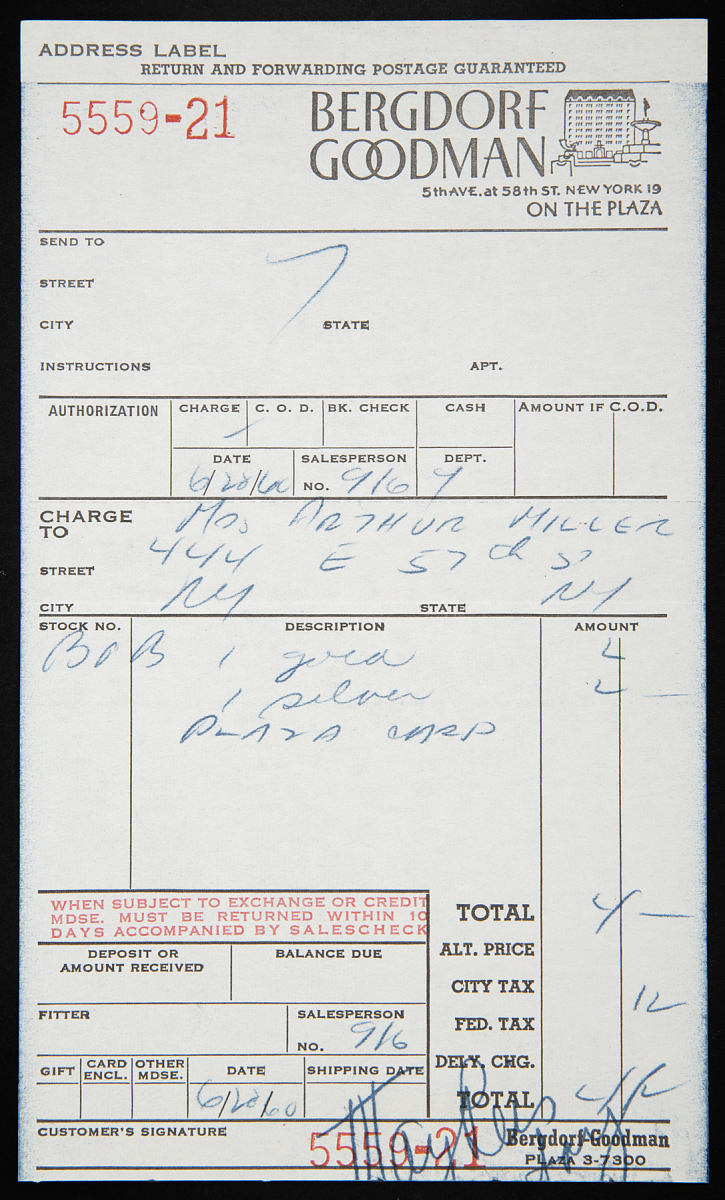 ADDRESS LABEL
RETURN AND FORWARDING POSTAGE GUARANTEED
5559-21
BERGDORF
GOODMAN
5th AVE. at 58th ST. NEW YORK 19
ON THE PLAZA
SEND TO
STREET
CITY STATE
INSTRUCTIONS APT.
AUTHORIZATION CHARGE C. O. D. BK. CHECK CASH AMOUNT IF C.O.D.
DATE SALESPERSON DEPT.
6/28/60 NO. 916 9
CHARGE TO Mrs ARTHUR MILLER
STREET 444 E 57th St
CITY NY STATE NY
STOCK NO. DESCRIPTION AMOUNT
1 gold 2
1 silver 2 —
PLAZA CARD
WHEN SUBJECT TO EXCHANGE OR CREDIT
MDSE. MUST BE RETURNED WITHIN 10
DAYS ACCOMPANIED BY SALESCHECK
TOTAL 4 —
DEPOSIT OR AMOUNT RECEIVED BALANCE DUE
ALT. PRICE
CITY TAX 12
FITTER SALESPERSON
NO. 916
FED. TAX
GIFT CARD ENCL. OTHER MDSE. DATE SHIPPING DATE
6/28/60
DELY. CHG.
TOTAL 4/12
CUSTOMER'S SIGNATURE
5559-21
Bergdorf-Goodman
PLAZA 3-7300